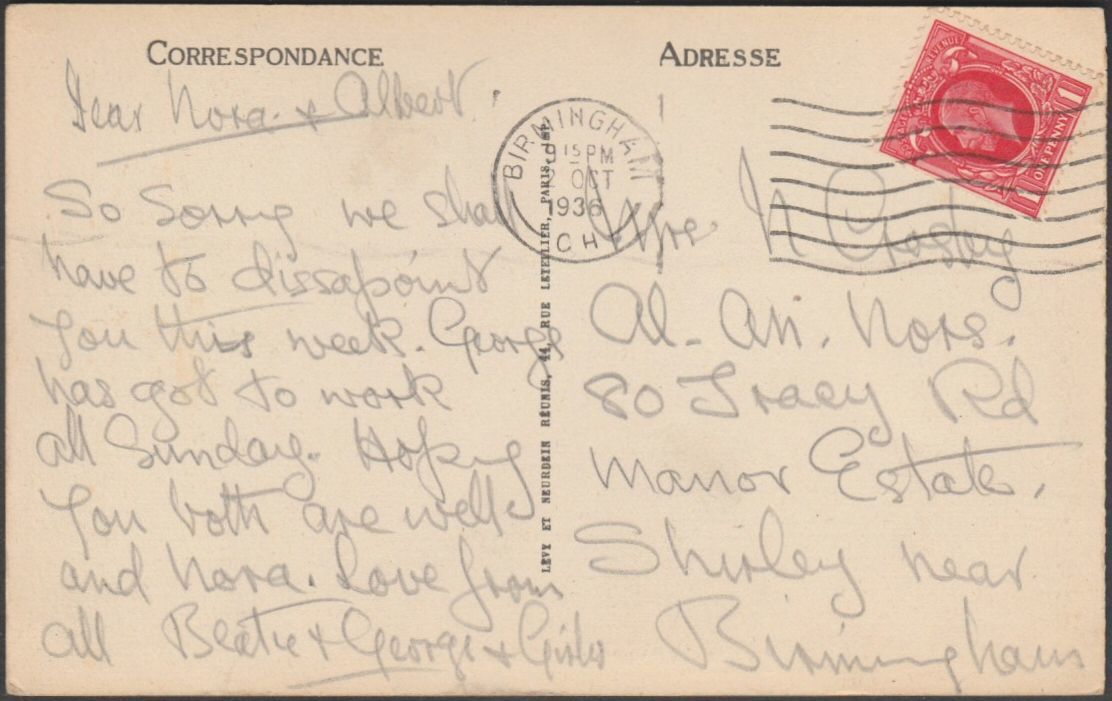 CORRESPONDANCE
Dear Nora & Albert
So Sorry we shall
have to dissapoint
You this week. George
has got to work
all Sunday. Hoping
You both are well
and Nora. Love from
all Beatie & George & Girls
LEVY ET NEURDEIN RÉUNIS, 44, RUE LETELLIER, PARIS
BIRMINGHAM
9 15 PM
2 OCT
1936
ADRESSE
REVENUE
ONE PENNY
1
N Crosby
Al-An. Nors.
80 Tracey Rd
Manor Estate,
Shirley near
Birmingham